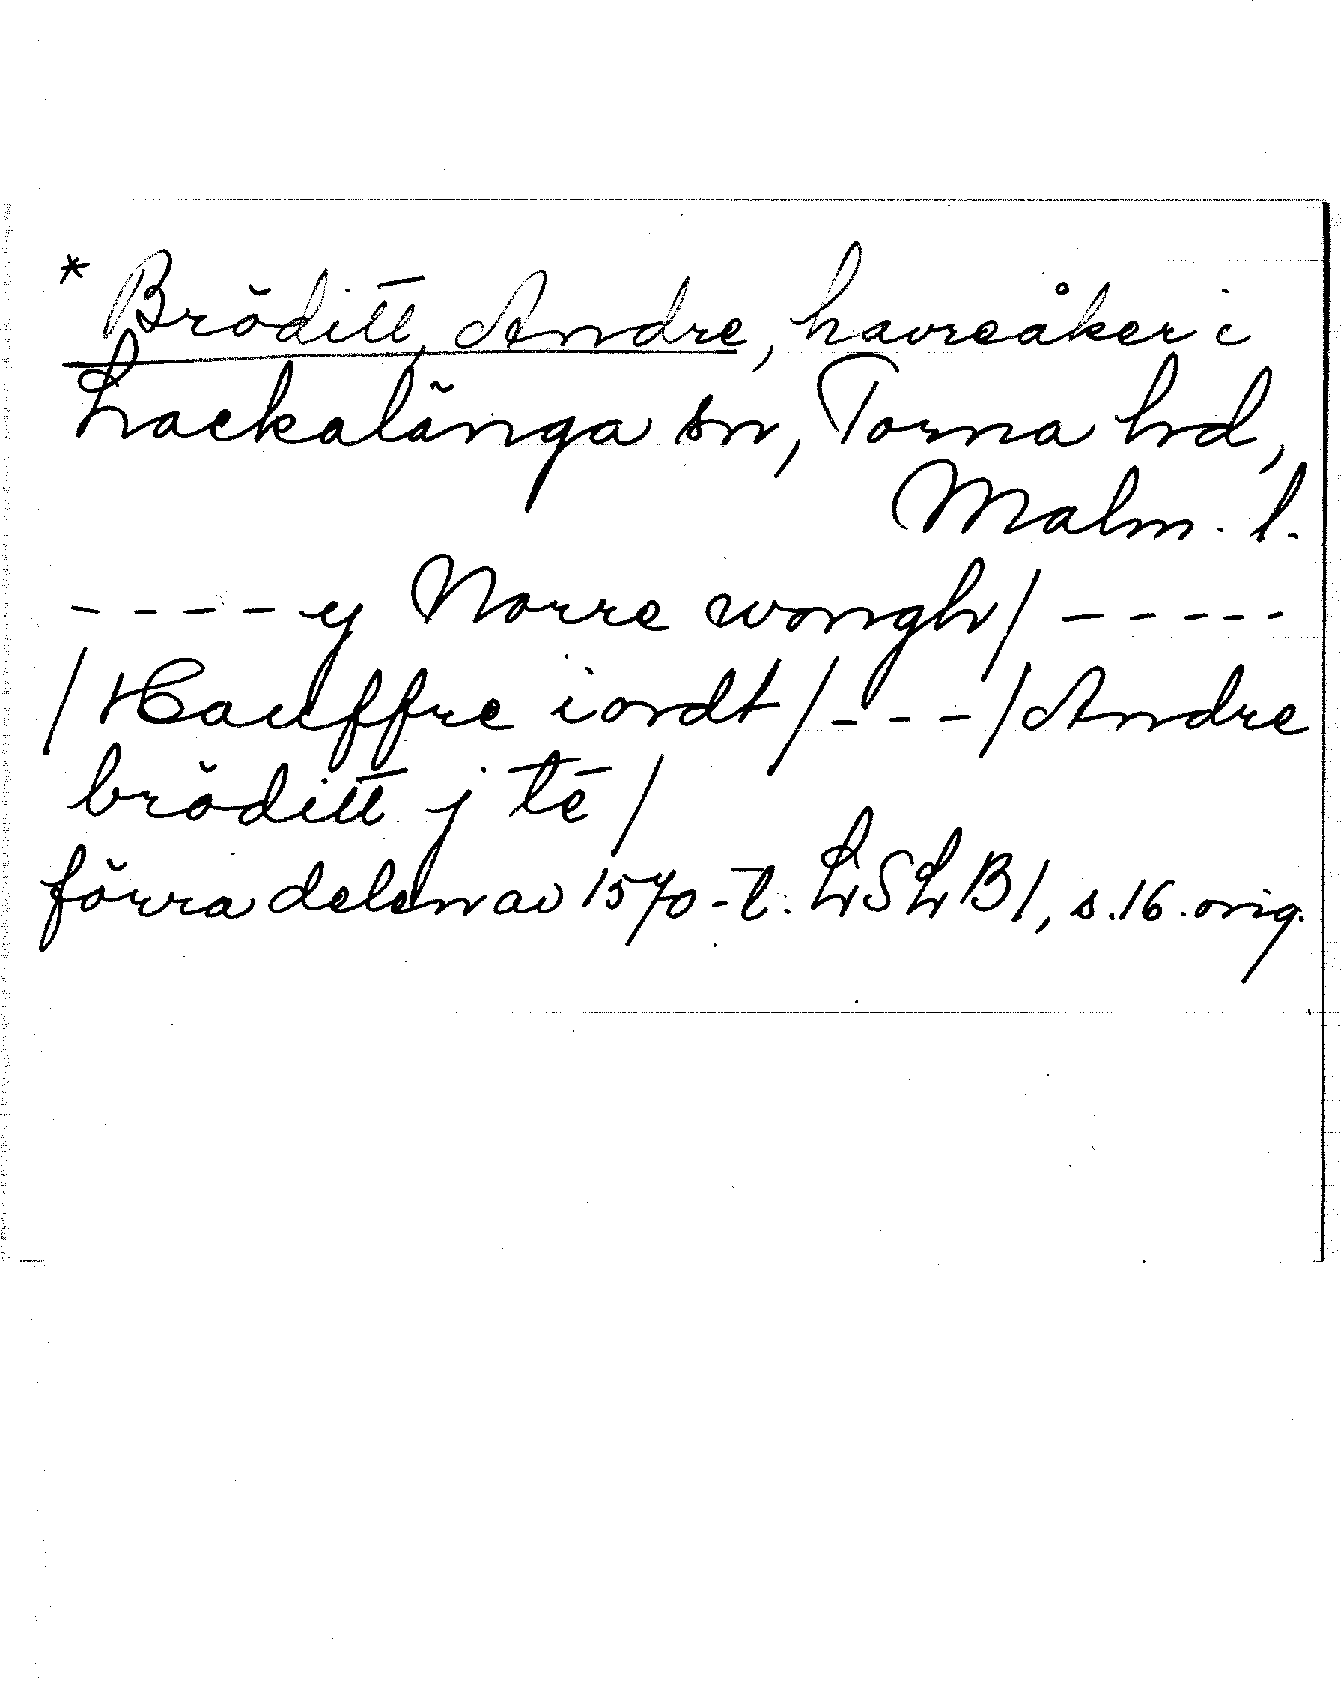 * Bröditt, Andre, havreåker i
Lackalänga sn, Torna hd,
Malm. l.
- - - - y Norre wongh/ - - - - -
/ Hauffre iordt / - - - / Andre
bröditt j tē /
förra delen av 1570-t. LSLB 1, s. 16. orig.